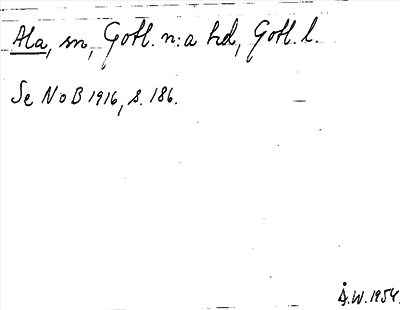 Ala, sn, Gotl. n:a hd, Gotl. l.
Se NoB 1916, s. 186.
Å.W. 1954.